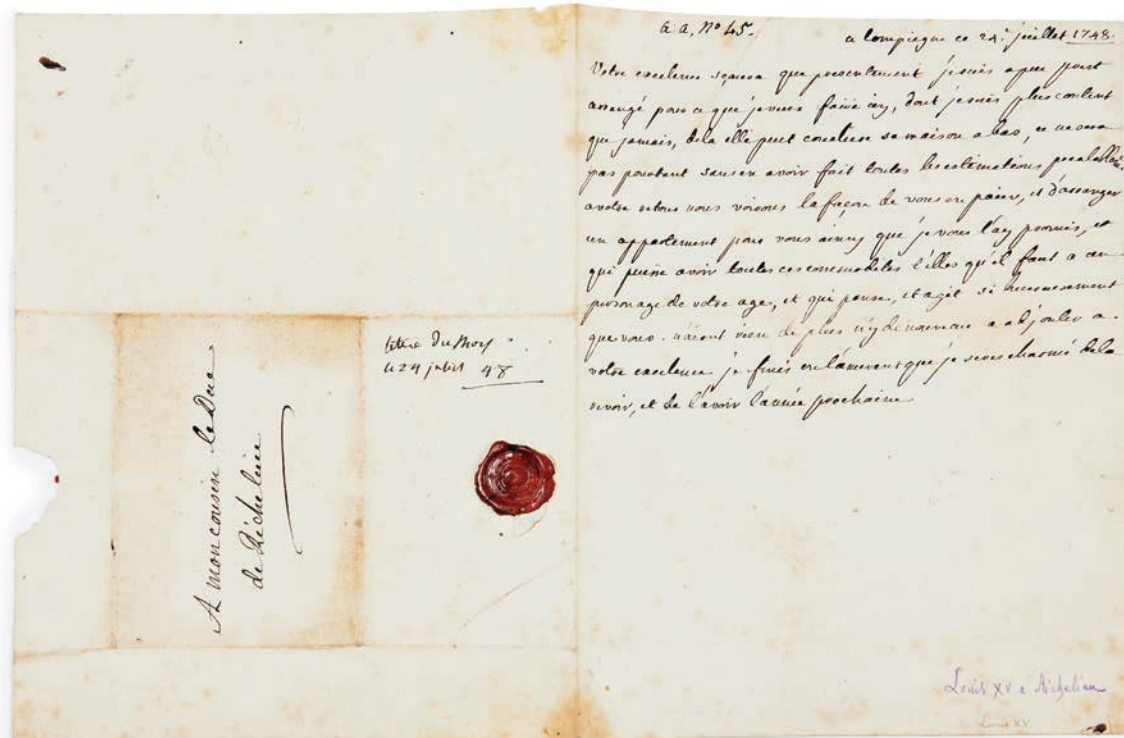 A mon cousin le Duc
de Richelieu
lettre du Roy
le 24 juillet 48
a a, N° 45.
a Compiegne ce 24.e juillet 1748.
Votre excelence sçaura que presentement je suis a peu pres
arrangé pour ce que je veux faire icy, dont je suis plus content
que jamais, dela elle peut conclure sa maison a bas, ce ne sera
pas pourtant sans en avoir fait toutes les estimations
a votre retour nous voirons la façon de vous en paier, et d'arranger
un appartement pour vous ainsy que je vous l'ay promis, et
qui puisse avoir toutes ces commodites t'elles qu'il faut a un
personage de votre age, et qui pense, et agit si
que vous. n'aient rien de plus icy de nouveau a adjouter a
votre excelence je finis en l'assurant que je serés charmé dela
revoir, et de l'avoir l'année prochaine
Louis XV a Richelieu
Louis XV